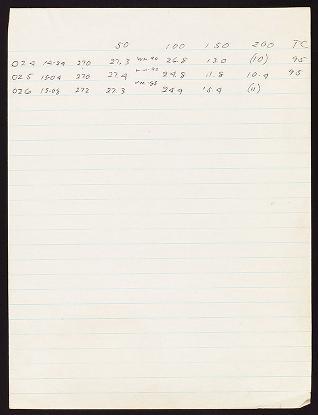 50 100 150 200 TC
024 14-54 270 27.3 26.8 13.0 (10) 95
025 15-04 270 27.4 24.8 11.8 10.9 95
026 15-08 272 27.3 24.9 15.4 (11)